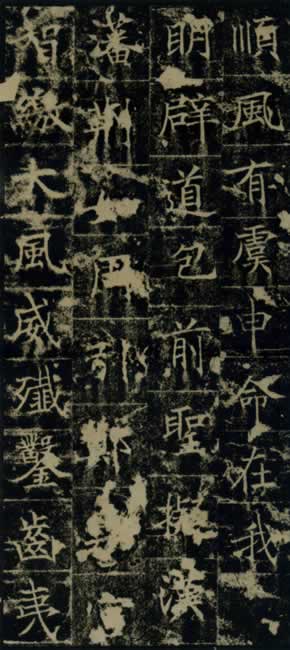 順風有虞申命在我
明辟道包前聖漢
藩荆引鄭
智繳大風威殲鑿齒夷